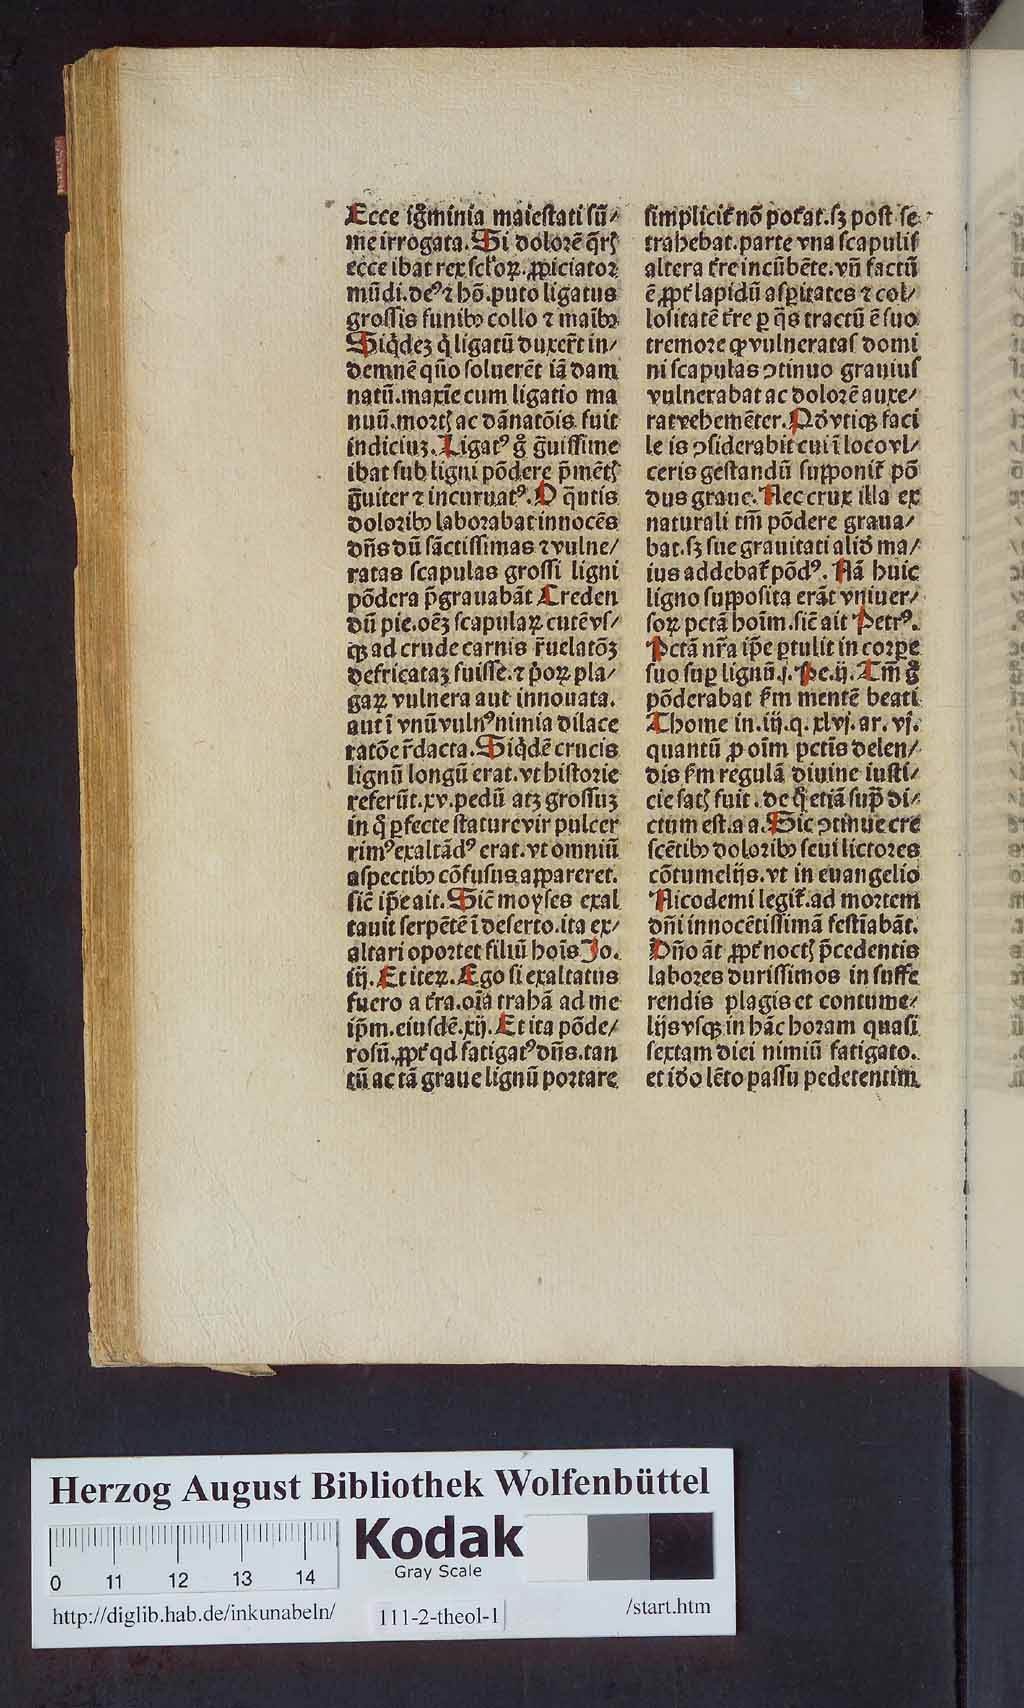 Ecce ig̃minia maiestati sū/
me irrogata. Si dolorē q̄rꝭ
ecce ibat rex scl'oꝝ. ꝓpiciator
mūdi. deꝰ ⁊ hō. puto ligatus
grossis funibꝰ collo ⁊ maībꝰ
Siq̇dez q̇ ligatū duxer̄t in/
demnē qn̄o soluerēt iā dam
natū. maxīe cum ligatio ma
nuū. mortꝭ ac dānatōis fuit
indiciuz. Ligatꝰ g̊ g̃uissime
ibat sub ligni pōdere p̄mētꝭ
g̃uiter ⁊ incuruatꝰ. O q̄ntis
doloribꝰ laborabat innocēs
dn̄s dū sāctissimas ⁊ vulne/
ratas scapulas grossi ligni
pōdera p̄grauabāt Creden
dū pie. oēʒ scapulaꝝ cutē vs/
qꝫ ad crude carnis r̄uelatōʒ
defricataʒ fuisse. ⁊ p̓oꝝ pla/
gaꝝ vulnera aut innouata.
aut ī vnū vulnꝰ nimia dilace
ratōe r̄dacta. Siq̇dē crucis
lignū longū erat. vt historie
referūt. xv. pedū atʒ grossuʒ
in q̊ ꝑfecte stature vir pulcer
rimꝰ exaltādꝰ erat. vt omniū
aspectibꝰ cōfusus appareret.
sic̄ ip̄e ait. Sic̄ moyses exal
tauit serpētē ī deserto. ita ex/
altari oportet filiū hoīs Jo.
iij. Et iteꝝ. Ego si exaltatus
fuero a t̄ra. oīa trahā ad me
ip̄m. eiusdē. xij. Et ita pōde/
rosū. ꝓpt̄ qd fatigatꝰ dn̄s. tan
tū ac tā graue lignū portare
simplicit̄ nō pot̄at. sʒ post se
trahebat. parte vna scapulis
altera t̄re incūbēte. vn̄ factū
ē ꝓpt̄ lapidū asꝑitates ⁊ col/
lositatē t̄re ꝑ q̄s tractū ē suo
tremore ꝙ vulneratas domi
ni scapulas ꝯtinuo grauius
vulnerabat ac dolorē auxe/
rat vehemēter. Qd̓ vtiqꝫ faci
le is ꝯsiderabit cui ī loco vl/
ceris gestandū supponit̄ pō
dus graue. Nec crux illa ex
naturali tm̄ pōdere graua/
bat. sʒ sue grauitati aliḋ ma/
ius addebat̄ pōdꝰ. Nā huic
ligno supposita erāt vniuer/
soꝝ pctā hoīm. sic̄ ait Petrꝰ.
Pctā nr̄a ip̄e ꝑtulit in corpe
suo suꝑ lignū. j. Pe. ij. Tm̄ g̊
pōderabat ẜm mentē beati
Thome in. iij. q. xlvj. ar. vj.
quantū ꝓ oīm pctīs delen/
dis ẜm regulā diuine iusti/
cie satꝭ fuit. de q̊ etiā sup̄ di/
ctum est. a a. Sic ꝯtinue cre
scētibꝰ doloribꝰ seui lictores
cōtumelijs. vt in euangelio
Nicodemi legit̄. ad mortem
dn̄i innocētissimā festīabāt.
Dn̄o āt ꝓpt̄ noctꝭ p̄cedentis
labores durissimos in suffe
rendis plagis et contume/
lijs vsqꝫ in hāc horam quasi
sextam diei nimiū fatigato.
et iḋo lēto passu pedetentim
Herzog August Bibliothek Wolfenbüttel
Kodak
Gray Scale
0 11 12 13 14
http://diglib.hab.de/inkunabeln/
111-2-theol-1
/start.htm